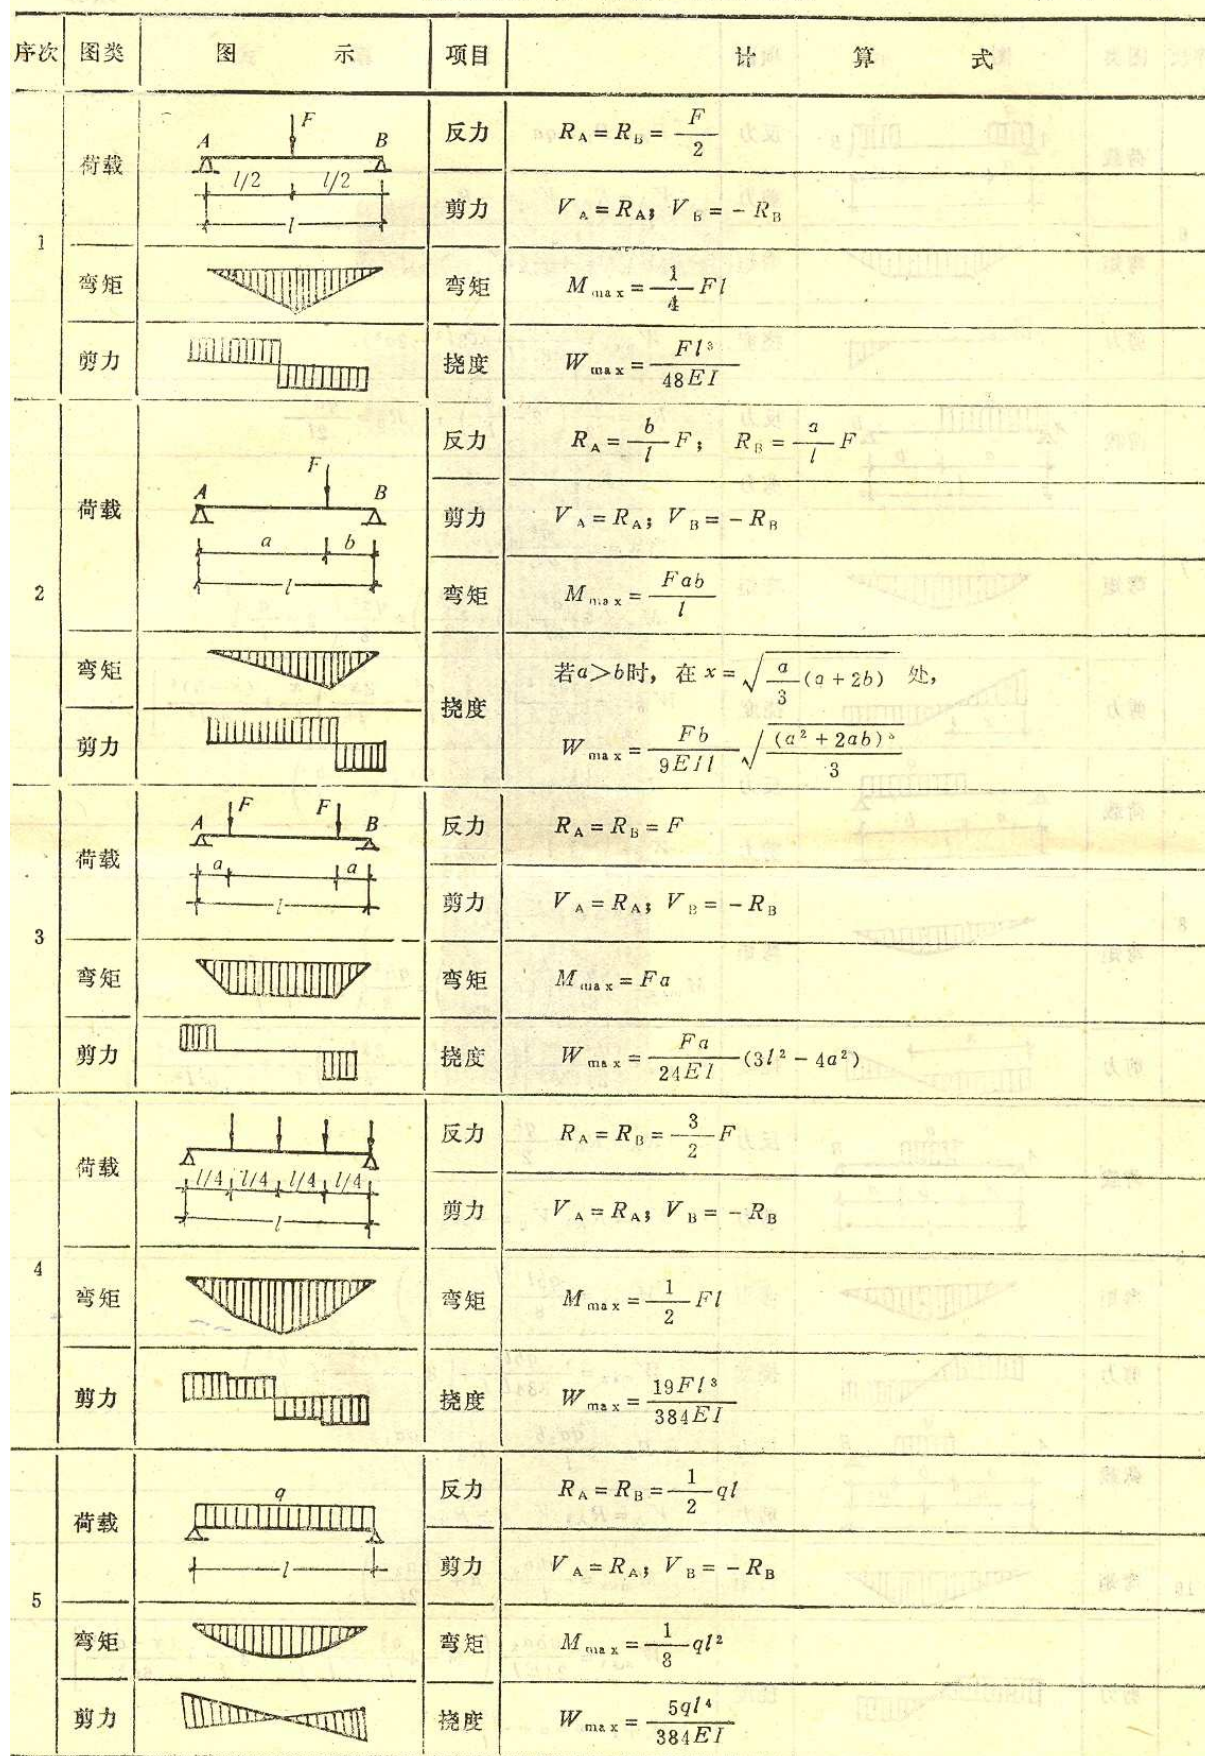 序次 图类 图示 项目 计算式
1
荷载
F
A B
l/2 l/2
l
反力 R_A = R_B = F/2
剪力 V_A = R_A; V_B = -R_B
弯矩 弯矩 M_max = 1/4 Fl
剪力 挠度 W_max = Fl³/48EI
2
荷载
F
A B
a b
l
反力 R_A = b/l F; R_B = a/l F
剪力 V_A = R_A; V_B = -R_B
弯矩 M_max = Fab/l
弯矩
剪力
挠度
若a>b时, 在 x = √(a/3 (a + 2b)) 处,
W_max = Fb/9EIl √((a² + 2ab)³/3)
3
荷载
F F
A B
a a
l
反力 R_A = R_B = F
剪力 V_A = R_A; V_B = -R_B
弯矩 弯矩 M_max = Fa
剪力 挠度 W_max = Fa/24EI (3l² - 4a²)
4
荷载
l/4 l/4 l/4 l/4
l
反力 R_A = R_B = 3/2 F
剪力 V_A = R_A; V_B = -R_B
弯矩 弯矩 M_max = 1/2 Fl
剪力 挠度 W_max = 19Fl³/384EI
5
荷载
q
l
反力 R_A = R_B = 1/2 ql
剪力 V_A = R_A; V_B = -R_B
弯矩 弯矩 M_max = 1/8 ql²
剪力 挠度 W_max = 5ql⁴/384EI